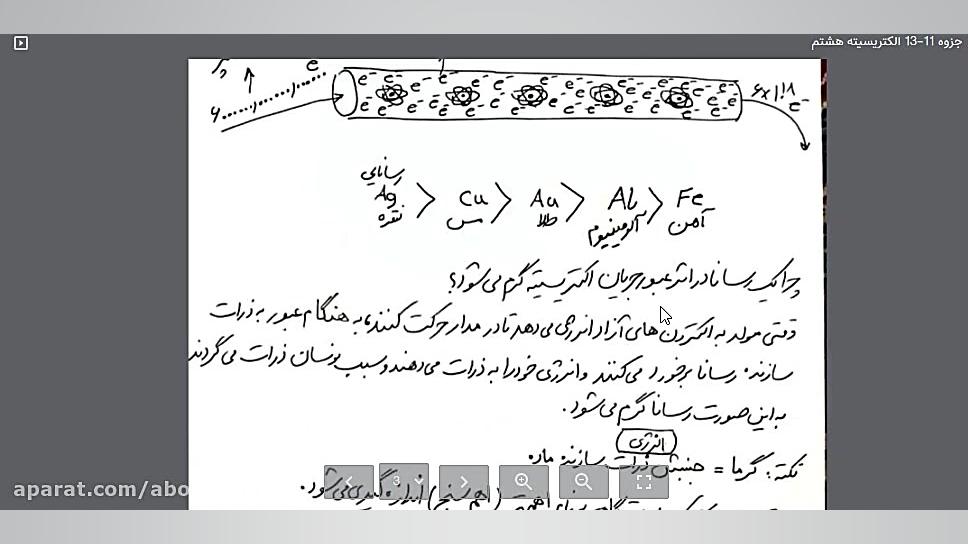 جزوه 11-13 الکتریسیته هشتم
e
e⁻ e⁻ e⁻ e⁻ e⁻ e⁻ e⁻ e⁻ e⁻
e⁻
رسانایی
Ag > Cu > Au > Al > Fe
نقره مس طلا آلومینیوم آهن
چرا یک رسانا در اثر عبور جریان الکتریسیته گرم می‌شود؟
وقتی مولد به الکترون‌های آزاد انرژی می‌دهد تا در مدار حرکت کنند، به هنگام عبور به ذرات
سازنده رسانا برخورد می‌کنند و انرژی خود را به ذرات می‌دهند و سبب نوسان ذرات می‌گردند
به این صورت رسانا گرم می‌شود.
انرژی
نکته: گرما = جنبشی ذرات سازنده ماده
3
(اهم سنج) اندازه گیری می‌شود.
aparat.com/abo